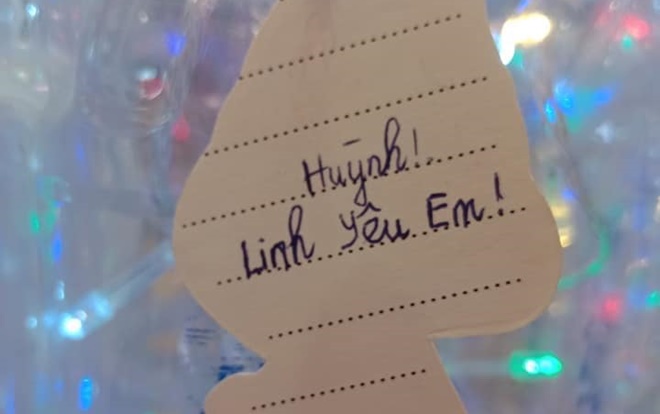 Huỳnh!
Linh Yêu Em!